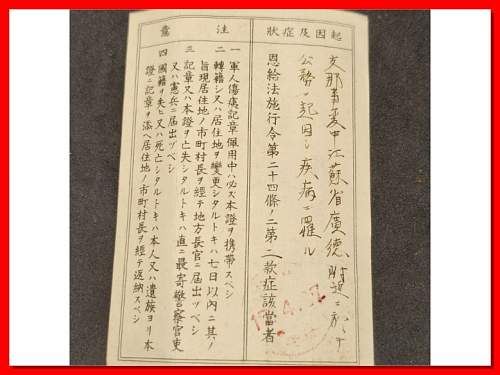 起因及症狀
支那事変中江蘇省廣德附近ニ於テ
公務ニ起因シ疾病ニ罹ル
恩給法施行令第二十四條ノ二第二款症該當者
注意
一 軍人傷痍記章佩用中ハ必ズ本證ヲ携帶スベシ
二 轉籍シ又ハ居住地ヲ變更シタルトキハ七日以內ニ其ノ
旨現居住地ノ市町村長ヲ經テ地方長官ニ屆出ヅベシ
三 記章又ハ本證ヲ亡失シタルトキハ直ニ最寄警察官吏
又ハ憲兵ニ屆出ヅベシ
四 國籍ヲ失ヒ又ハ死亡シタルトキハ本人又ハ遺族ヨリ本
證ニ記章ヲ添ヘ居住地ノ市町村長ヲ經テ返納スベシ